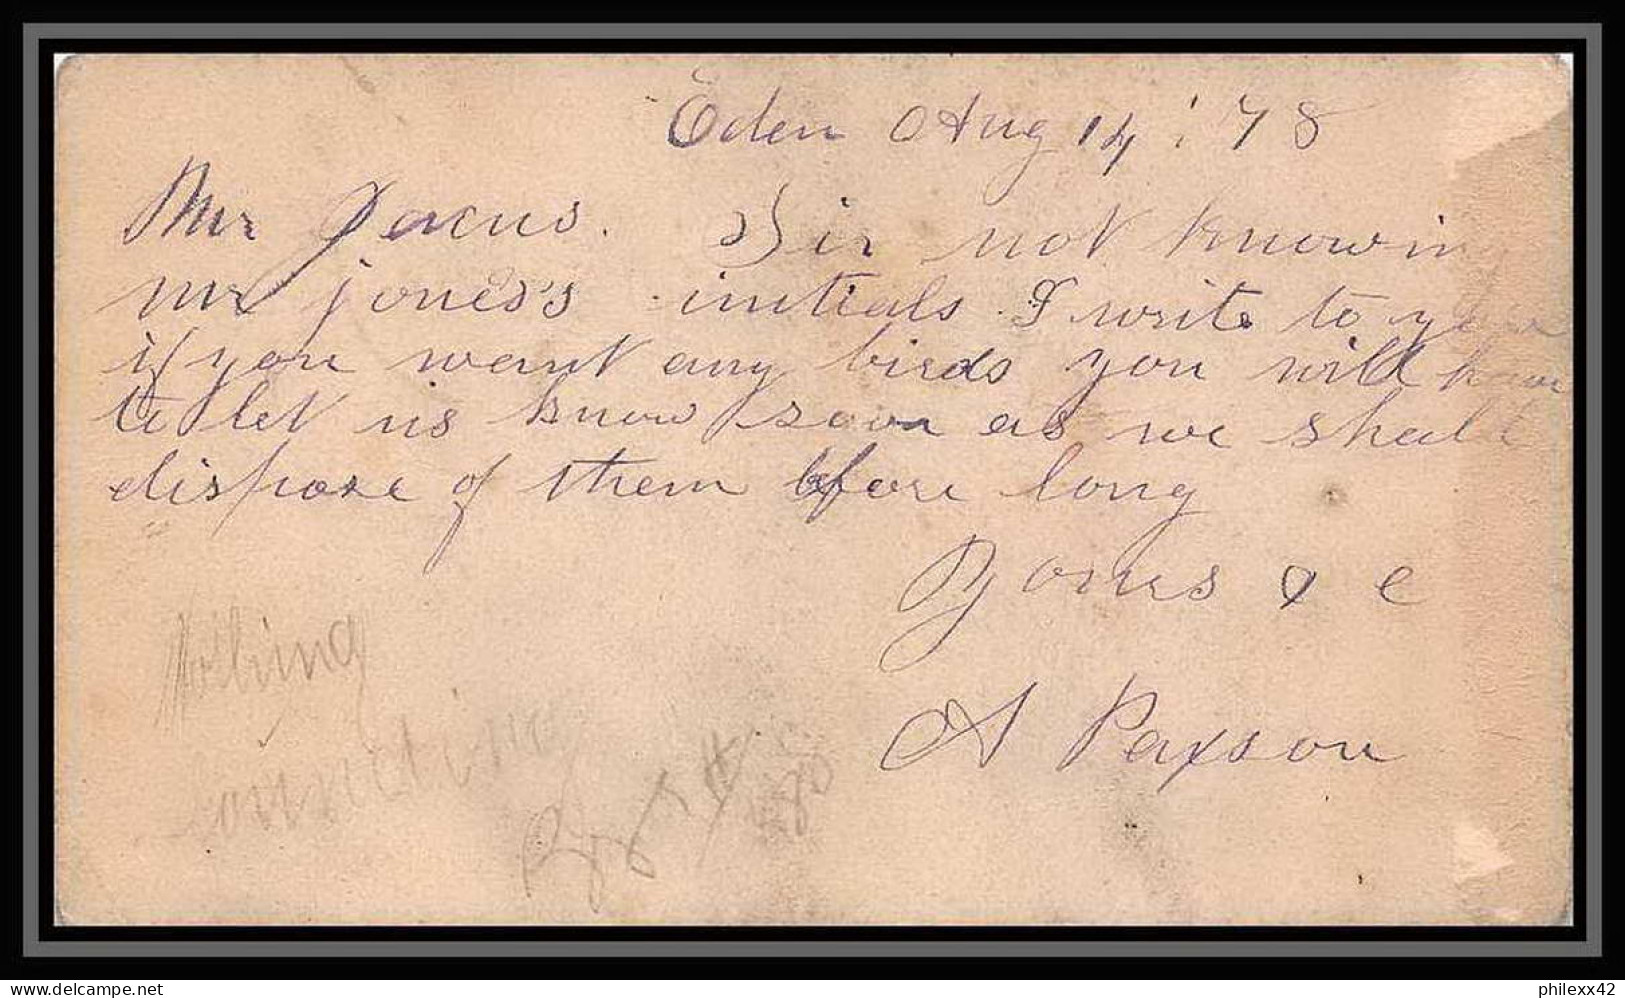 Eden Aug 14, '78
Mr Jacus. Sir not knowing
Mr jones's initials I write to you
if you want any birds you will have
to let us know soon as we shall
dispose of them before long
Yours & c
A Payson
www.delcampe.net
philexx42